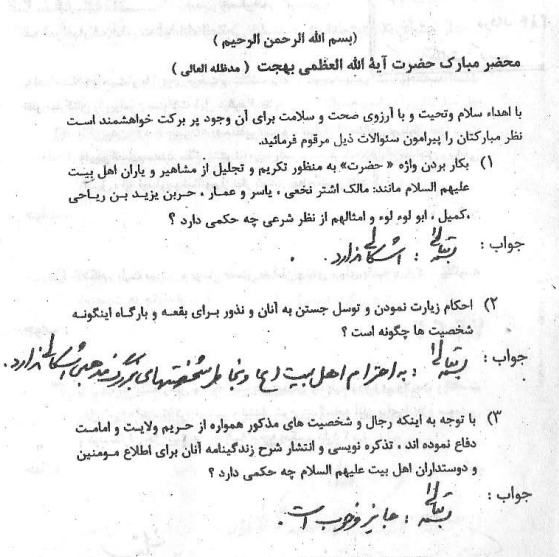 (بسم الله الرحمن الرحیم)
محضر مبارک حضرت آیة الله العظمی بهجت (مدظله العالی)
با اهداء سلام وتحیت و با آرزوی صحت و سلامت برای آن وجود پر برکت خواهشمند است
نظر مبارکتان را پیرامون سئوالات ذیل مرقوم فرمائید.
۱) بکار بردن واژه « حضرت» به منظور تکریم و تجلیل از مشاهیر و یاران اهل بیت
علیهم السلام مانند: مالک اشتر نخعی ، یاسر و عمار ، حربن یزید بن ریاحی
،کمیل ، ابو لوء لوء و امثالهم از نظر شرعی چه حکمی دارد ؟
جواب : بسمه تعالی : اشکالی ندارد .
۲) احکام زیارت نمودن و توسل جستن به آنان و نذور برای بقعه و بارگاه اینگونه
شخصیت ها چگونه است ؟
جواب : بسمه تعالی : به احترام اهل بیت شخصیتهای مذهبی اشکالی ندارد .
۳) با توجه به اینکه رجال و شخصیت های مذکور همواره از حریم ولایت و امامت
دفاع نموده اند ، تذکره نویسی و انتشار شرح زندگینامه آنان برای اطلاع مومنین
و دوستداران اهل بیت علیهم السلام چه حکمی دارد ؟
جواب : بسمه تعالی : جایز و خوب است .